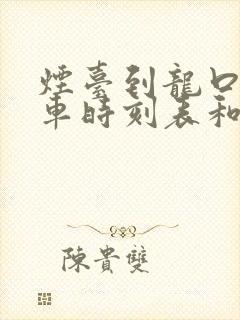 煙臺到龍口
車時刻表和
陳貴雙